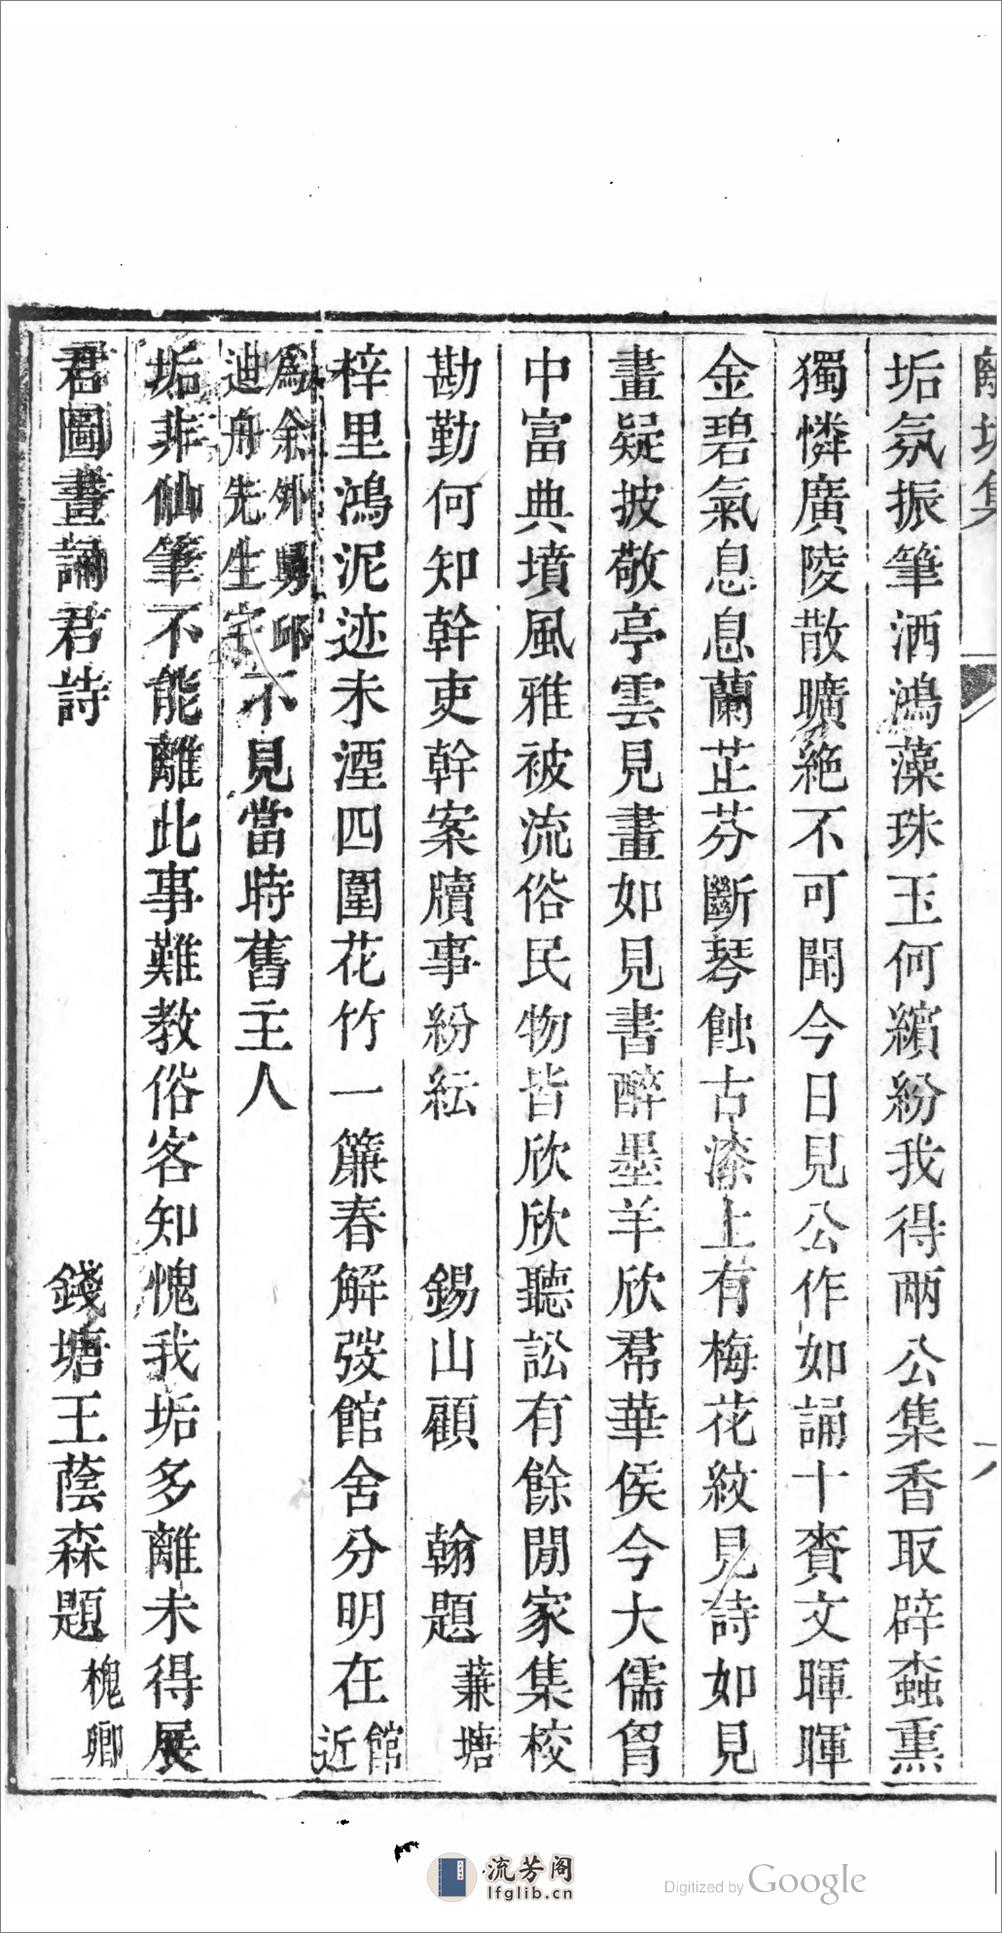 離垢集
垢氛振筆洒鴻藻珠玉何繽紛我得兩公集香取辟蠹熏
獨憐廣陵散曠絶不可聞今日見公作如誦十賚文暉暉
金碧氣息息蘭芷芬斷琴蝕古漆上有梅花紋見詩如見
畫疑披敬亭雲見畫如見書醉墨羊欣帬華侯今大儒胷
中富典墳風雅被流俗民物皆欣欣聽訟有餘閒家集校
勘勤何知幹吏幹案牘事紛紜　錫山顧　翰題　蒹塘
梓里鴻泥迹未湮四圍花竹一簾春解弢館舍分明在 館近
爲余外舅邱迪舟先生宅 不見當時舊主人
垢非仙筆不能離此事難教俗客知愧我垢多離未得展
君圖畫誦君詩　錢塘王蔭森題　槐卿
流芳阁
lfglib.cn
Digitized by Google